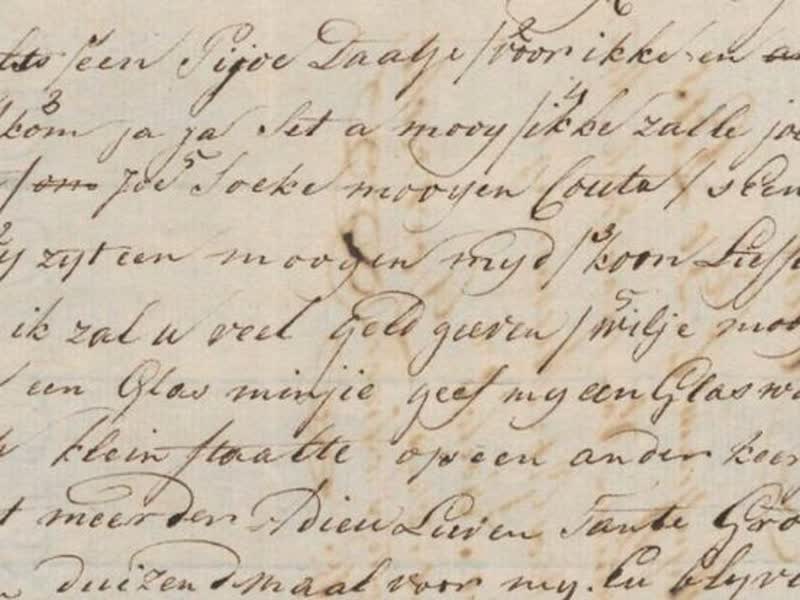 een Pijoe Daatje / 2 voor ikke en
3 kom ja ja Set a mooy / 4 ikke zalle joe
/ om joe 5 Soeke mooyen Couta / s Een
zyt een mooyen myd / 3 koon
ik zal u veel geld geeven / 5 wilje moo
een Glas minjie geef my een Glas
klein staatte op een ander keer
meerder Adieu Lieven Tante Gro
duizendmaal voor my. En blyv